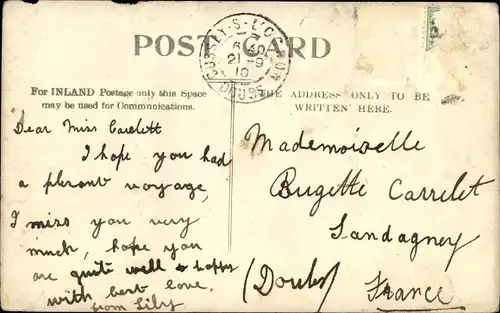 POST CARD
CUSSEY-S-L'OGNON
6 40
21-9
10
DOUBS
For INLAND Postage only this Space
may be used for Communications.
THE ADDRESS ONLY TO BE
WRITTEN HERE.
Dear Miss
I hope you had
a plesant voyage,
I miss you very
much, hope you
are quite well & happy
with best love.
from Lily
Mademoiselle
Bugette Carrelet
(Doubs)
France